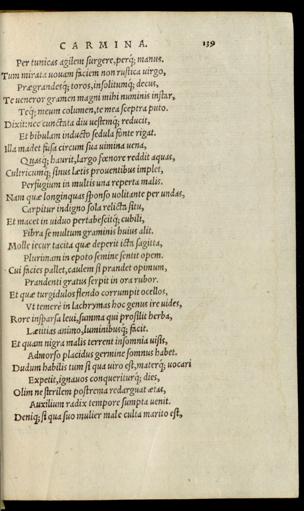 CARMINA. 139
Per tunicas agilem surgere, perq; manus.
Tum mirata nouam faciem non rustica uirgo,
Prægrandesq; toros, insolitumq; decus,
Te ueneror gramen magni mihi numinis instar,
Teq; meum columen, te mea sceptra puto.
Dixit: nec cunctata diu uestemq; reducit,
Et bibulam inducto sedula fonte rigat.
Illa madet fusa circum sua uimina uena,
Quasq; haurit, largo fœnore reddit aquas,
Cultricumq; sinus lætis prouentibus implet,
Perfugium in multis una reperta malis.
Nam quæ longinquas sponso uolitante per undas,
Carpitur indigno sola relicta situ,
Et macet in uiduo pertabescitq; cubili,
Fibra se multum graminis huius alit.
Molle iecur tacita quæ deperit icta sagitta,
Plurimam in epoto semine sentit opem.
Cui facies pallet, caulem si prandet opimum,
Prandenti gratus serpit in ora rubor.
Et quæ turgidulos flendo corrumpit ocellos,
Vt temere in lachrymas hoc genus ire uides,
Rore insparsa leui, summa qui prosilit herba,
Lætitias animo, luminibusq; facit.
Et quam nigra malis terrent insomnia uisis,
Admorso placidus germine somnus habet.
Dudum habilis tum si qua uiro est, materq; uocari
Expetit, ignauos conqueriturq; dies,
Olim ne sterilem postrema redarguat ætas,
Auxilium radix tempore sumpta uenit.
Deniq; si qua suo mulier male culta marito est,